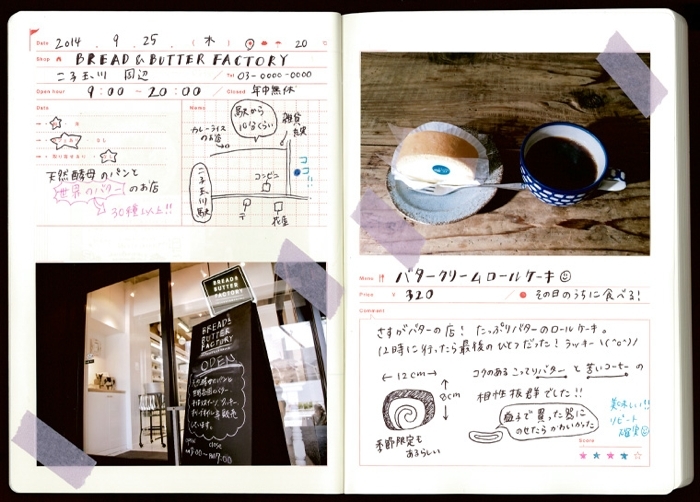 Date 2014 . 9 . 25 . (木) 20
Shop BREAD & BUTTER FACTORY
二子玉川 周辺 Tel 03-0000-0000
Open hour 9:00 ~ 20:00 Closed 年中無休
Data
Memo
天然酵母のパンと
世界のバターのお店
30種以上!!
駅から
10分くらい
雑貨
カレーライス
のお店
ココ!!
コンビニ
二子玉川駅
〒
花屋
BREAD &
BUTTER
FACTORY
BREAD &
BUTTER
FACTORY
OPEN
天然酵母のパンと
Menu バタークリームロールケーキ
Price ¥ 320 / その日のうちに食べる!
Comment
さすがバターの店! たっぷりバターのロールケーキ。
12時に行ったら最後のひとつだった! ラッキー\(^o^)/
コクのあるこってりバターと苦いコーヒーの
相性抜群でした!!
←12cm→
8cm
季節限定も
あるらしい
益子で買った器に
のせたらかわいかった
美味しい!!
リピート
確実
Score
★★★★☆